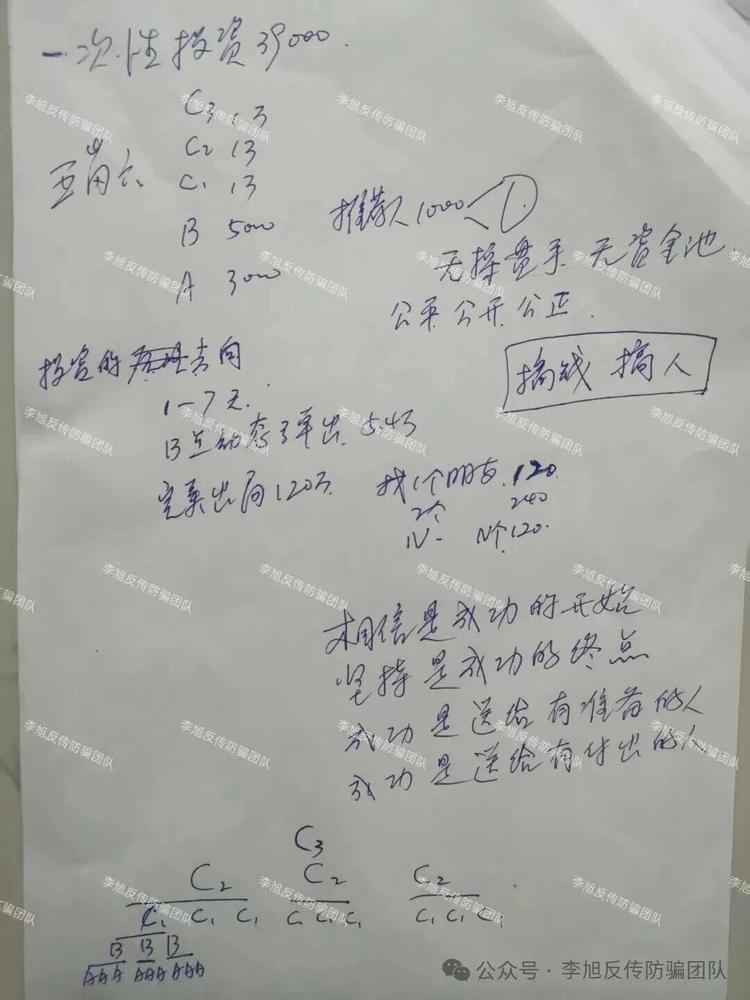 一次性投资39000.
C3 1万
C2 1万
C1 1万
B 5000
A 3000
推荐人1000
无操盘手 无资金池
公平公开公正.
投资的 去向
搞钱 搞人
1-7天.
B 动态 弹出 5.4万
完美出局120万 找1个朋友.120
2个 240
N个120.
相信是成功的开始
坚持是成功的终点
成功是送给有准备的人
成功是送给有付出的人
C3
C2 C2 C2
C1 C1 C1 C1 C1 C1 C1 C1 C1
B B B
AAA AAA AAA
李旭反传防骗团队
公众号·李旭反传防骗团队